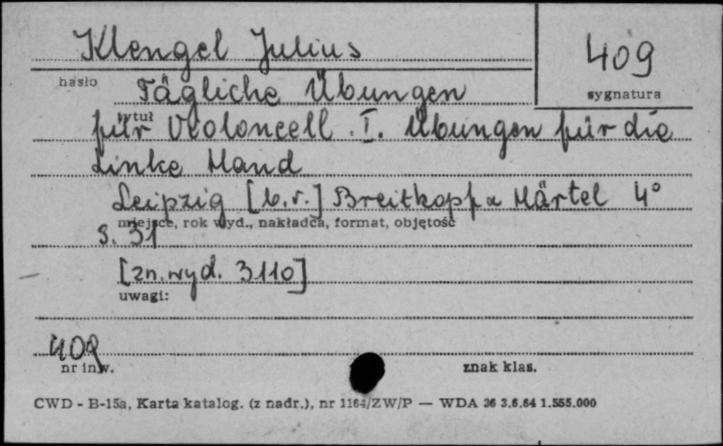 Klengel Julius
409
hasło
Tägliche Übungen
sygnatura
tytuł
für Violoncell. I. Übungen für die
Linke Hand
Leipzig [b.r.] Breitkopf u Härtel 4°
miejsce, rok wyd., nakładca, format, objętość
s. 31
[zn. wyd. 3110]
uwagi:
409
nr inw.
znak klas.
CWD - B-15a, Karta katalog. (z nadr.), nr 1164/ZW/P — WDA 36 3.6.64 1.555.000